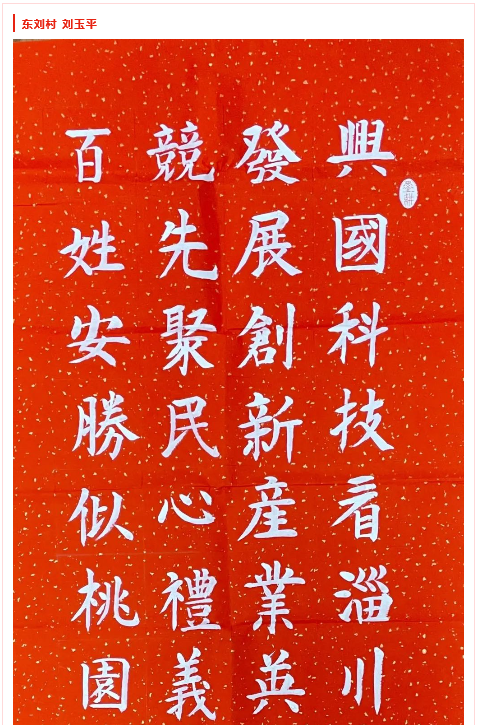 东刘村 刘玉平
興國科技看淄川
發展創新産業英
競先聚民心禮義
百姓安勝似桃園